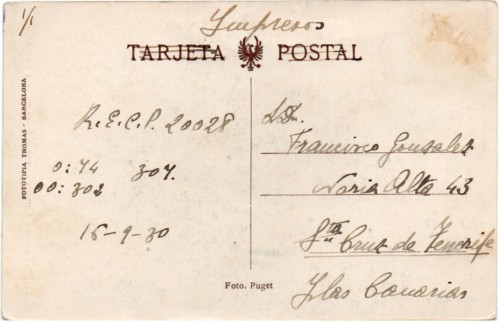 1/1
Impresos
TARJETA POSTAL
FOTOTIPIA THOMAS - BARCELONA
R.E.C.P. 20028
0: 44 307.
00: 302
15-9-30
Foto. Puget
Francisco Gonsales
Noria Alta 43
Sta Cruz de Tenerife
Islas Canarias